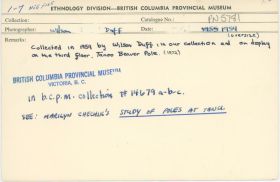 1-9 NEG FILE
ETHNOLOGY DIVISION—BRITISH COLUMBIA PROVINCIAL MUSEUM
Collection: Catalogue No.: PN 5791
Photographer: Wilson Duff 1954
(oversize)
Remarks:
Collected in 1954 by Wilson Duff, in our collection and on display
on the third floor, Tanoo Beaver Pole. (1972)
BRITISH COLUMBIA PROVINCIAL MUSEUM
VICTORIA, B.C.
in b.c.p.m. collection # 14679 a-b-c.
SEE: MARILYN CHECHIK'S STUDY OF POLES AT TANU.